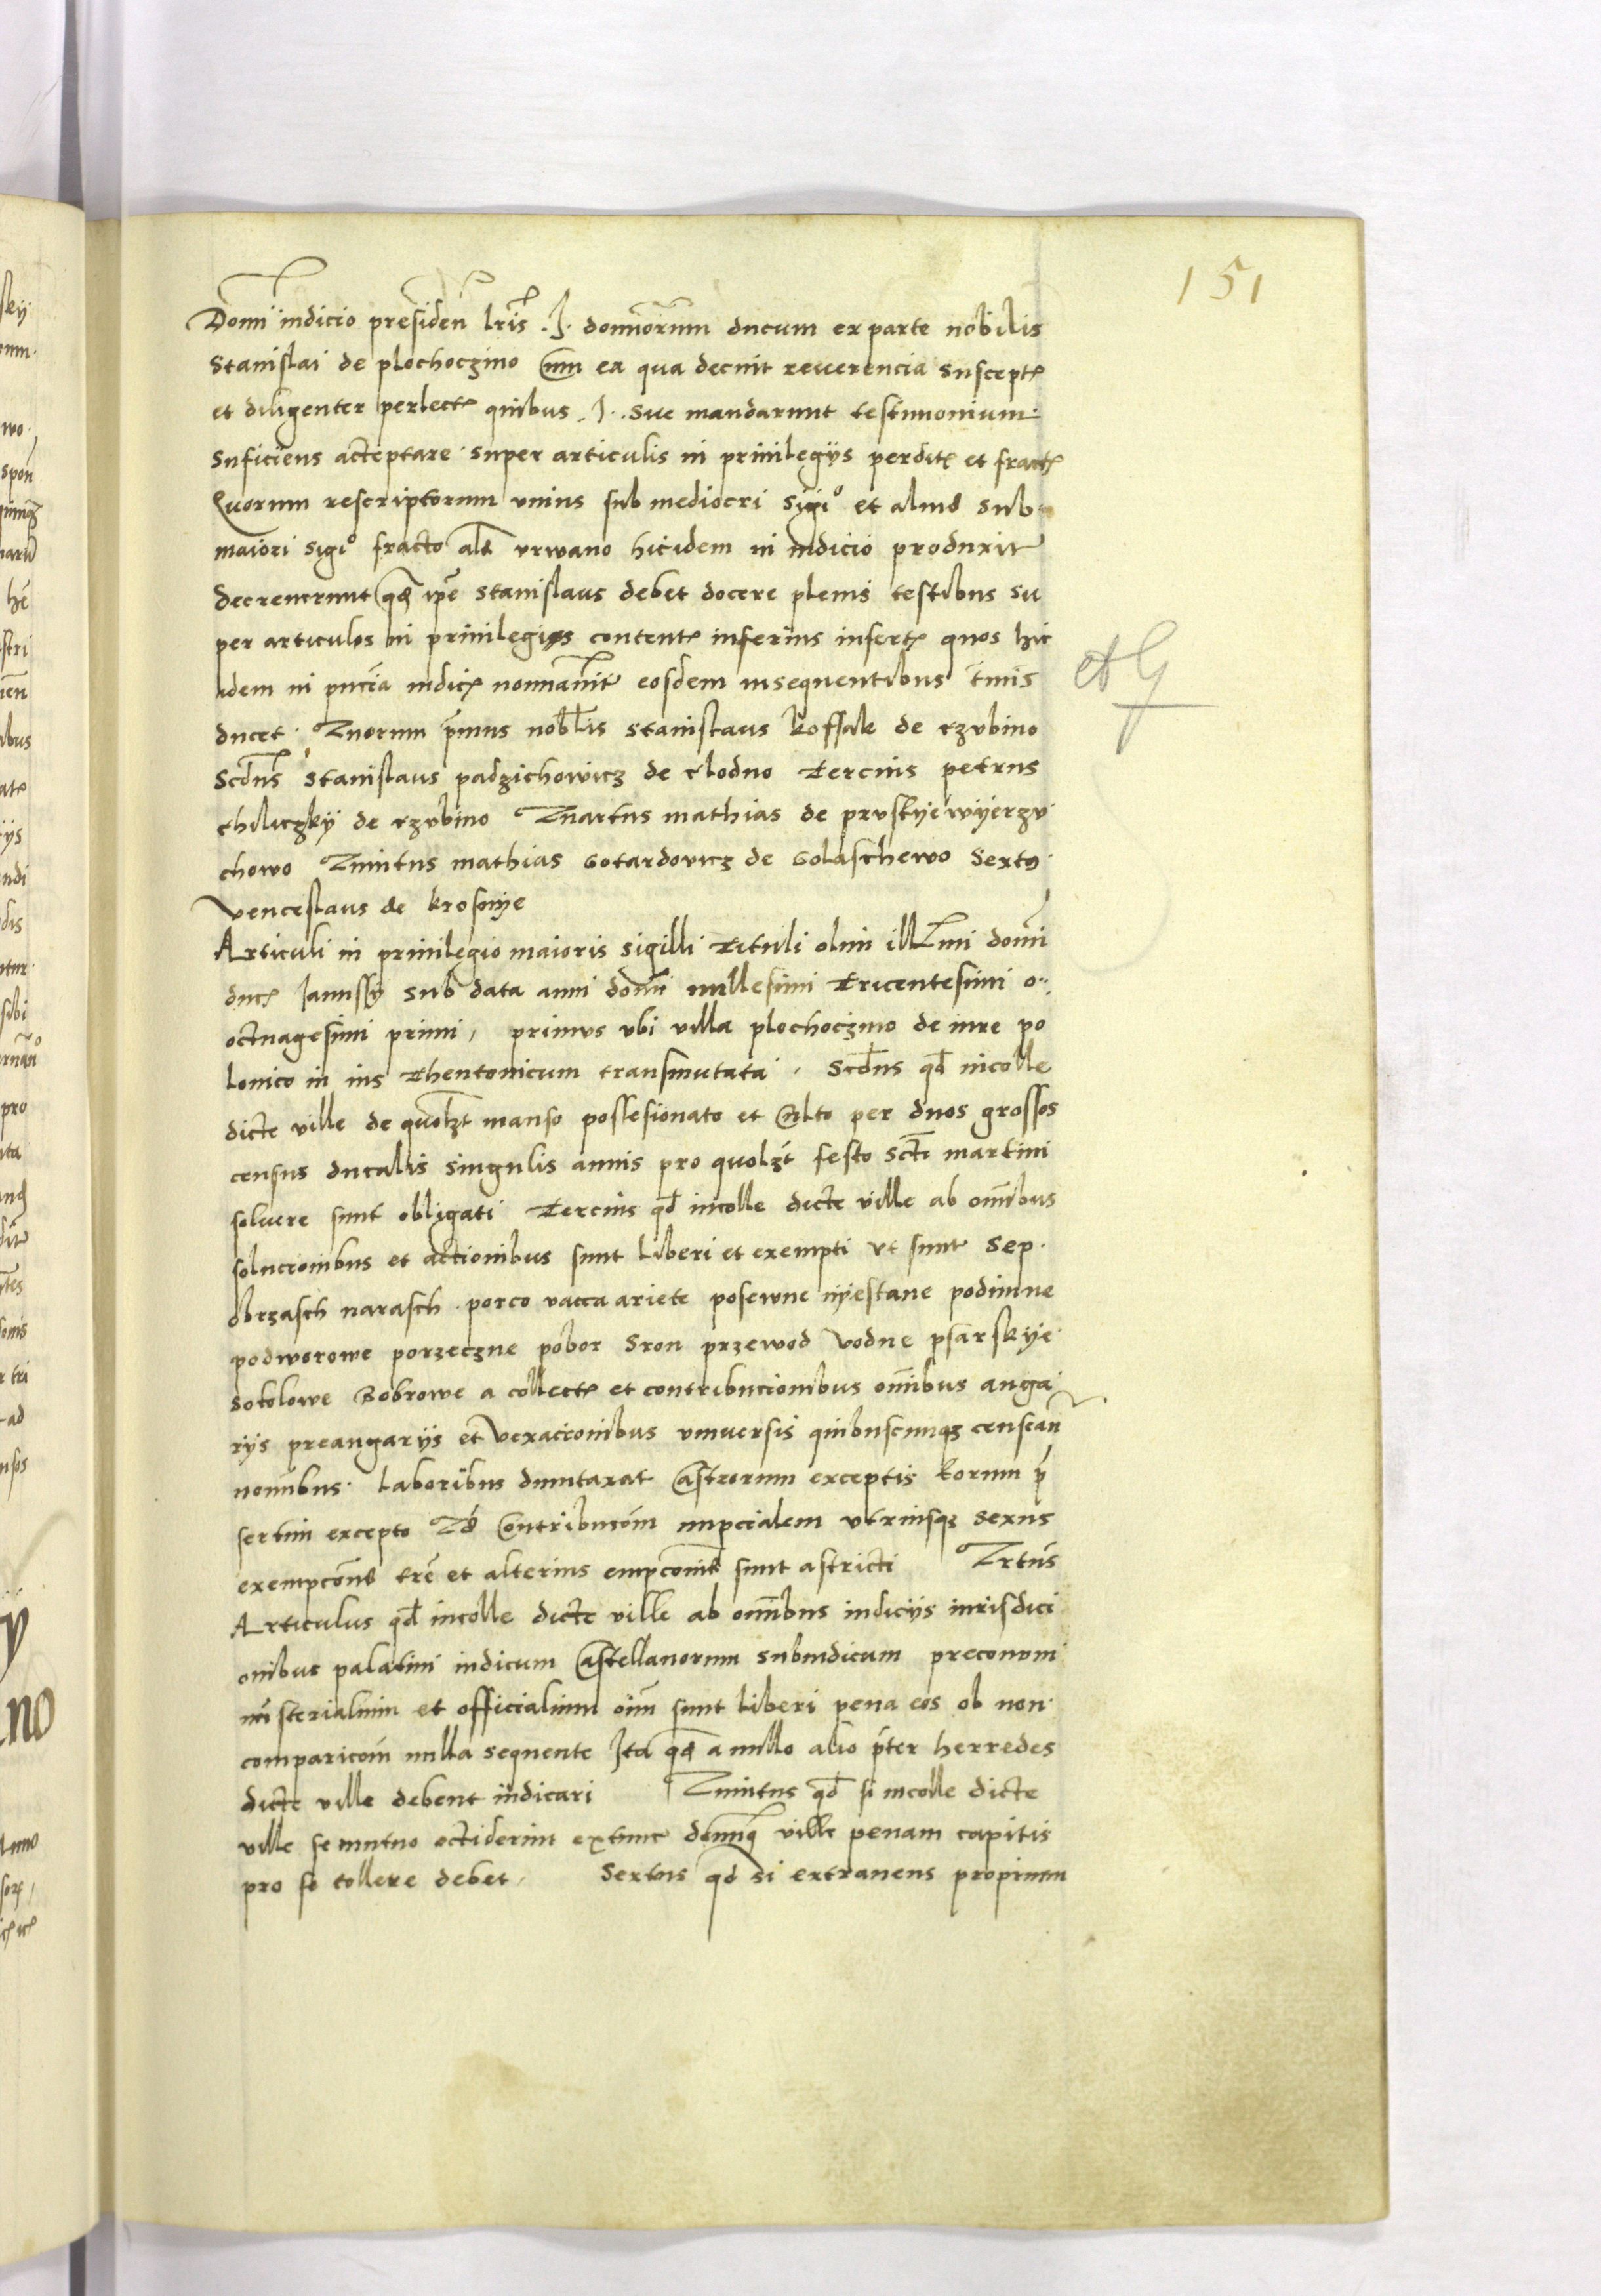 151
Domi iudicio presiden lris .I. dominorum ducum ex parte nobilis
Stanislai de plochoczino cum ea qua decuit reuerencia suscept
et diligenter perlect quibus .I. sue mandarunt testimonium
suficiens acceptare super articulis in priuilegijs perdit et fract
Quorum rescriptorum vnius sub mediocri sigio et aliud sub
maiori sigio fracto als vrwano hicidem in iudicio produxit
decreuerunt qd ipe Stanislaus debet docere plenis testibus su
per articulos in priuilegijs content inferius insert quos hic
idem in pncia iudicy nominauit eosdem insequentibus tmis
ducet. Quorum pmus nobilis Stanislaus kossak de rzvbino
Scdus Stanislaus padzichowicz de clodno tercius petrus
chiliczky de rzvbino Quartus mathias de prvstye wyerzv
chowo Quintus mathias Gotardovicz de Golaschewo Sextus
Venceslaus de krosnye
Articuli in priuilegio maioris sigilli tituli olim illmi domi
ducis Janussy sub data anni domi millesimi tricentesimi o
octuagesimi primi, primus vbi villa plochoczino de iure po
lonico in ius thentonicum transmutata. Scdus qd incolle
dicte ville de quolzt manso possesionato et culto per duos grossos
census ducalis singulis annis pro quolzt festo scti martini
soluere sunt obligati tercius qd incolle dicte ville ab omibus
solucionibus et actionibus sunt liberi et exempti vt sunt Sep
obrzasch narasch porco vacca ariete posewne nyestane podimne
podworowe porzeczne pobor Sron przewod vodne psarskye
Sokolowe Bobrowe a collect et contribucionibus omibus anga
rijs preangarijs et vexacionibus vniuersis quibuscunqz censeant
nomibus. Laboribus dumtaxat castrorum exceptis Eorum p
sertim excepto Qd contribucom nupcialem vtriusqz sexus
exempcone tre et alterius empcione sunt astricti Qrtus
Articulus qd incolle dicte ville ab omibus iudicijs iurisdici
onibus palatini iudicum castellanorum subiudicum preconum
misterialium et officialium oim sunt liberi pena eos ob non
comparicom nulla sequente Ita qd a nullo alio pter herredes
dicte ville debent iudicari Quintus qd si incolle dicte
ville se mutuo occiderint extunc domi ville penam capitis
pro se tollere debet. Sextus qd si extraneus propinum